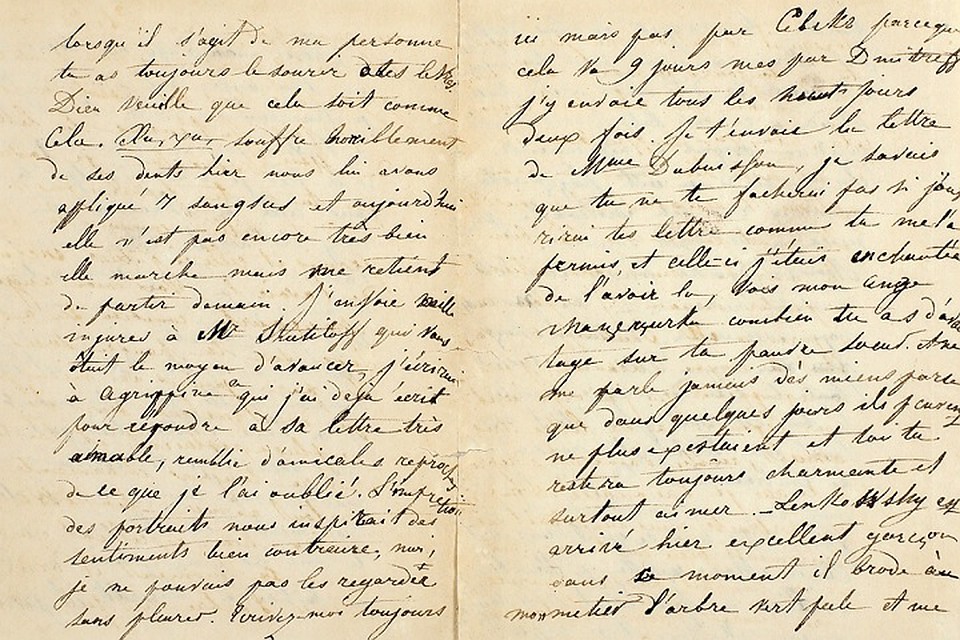 lorsqu'il s'agit de ma personne
tu as toujours le sourir
Dieu veuille que cela soit comme
Cela. souffre horriblement
de ses dents hier nous lui avons
appliqué 7 sangsus et aujourd'hui
elle n'est pas encore très bien
elle marche mais me retient
de partir demain J'envoie mille
injures à Mr qui vous
ôtait le moyen d'avancer, j'écrirai
à Agrippine qui j'ai déja écrit
pour repondre à sa lettre très
aimable, remplie d'amicales
de ce que je l'ai oublié.
des portraits nous inspirait des
sentiments bien contraire, moi,
je ne pouvais pas les regarder
sans pleurer. Ecrivez-moi toujours
ici mais pas par parceque
cela va 9 jours mes par
j'y envoie tous les jours
deux fois. Je t'envoie la lettre
de Mme Dubuisson, je savais
que tu ne te facherai pas si
tes lettre comme tu me l'a
permis, et celle-ci j'étais enchantée
de l'avoir lu, Vois mon ange
combien tu a s
tage sur ta pauvre soeur.
me parle jamais dès miens parce
que dans quelques jours ils
ne plus et toi tu
restera toujours charmante et
surtout aimer. - Lenkowsky est
arrivé hier excellent garçon
dans ce moment il brode au
mon metier l'arbre vert pale et me